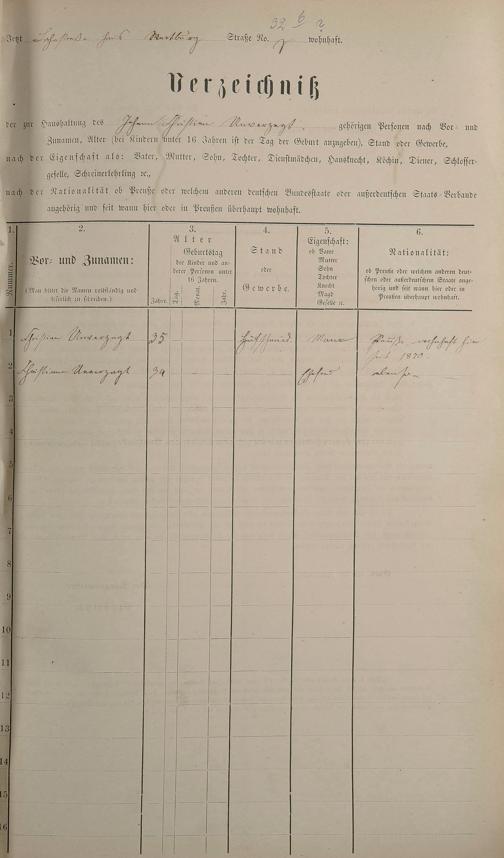 32 6 ?
Jetzt haus Wartburg Straße No. 7 wohnhaft.
Verzeichniß
der zur Haushaltung des Johann Christian Unverzagt gehörigen Personen nach Vor- und
Zunamen, Alter (bei Kindern unter 16 Jahren ist der Tag der Geburt anzugeben), Stand oder Gewerbe,
nach der Eigenschaft als: Vater, Mutter, Sohn, Tochter, Dienstmädchen, Hausknecht, Köchin, Diener, Schlosser-
geselle, Schreinerlehrling ec.,
nach der Nationalität ob Preuße oder welchem anderen deutschen Bundesstaate oder außerdeutschen Staats-Verbande
angehörig und seit wann hier oder in Preußen überhaupt wohnhaft.
1. 2. 3. 4. 5. 6.
Nummer.
Vor- und Zunamen:
(Man bittet die Namen vollständig und
zu schreiben.)
Alter
Geburtstag
der Kinder und an-
derer Personen unter
16 Jahren.
Jahre. Tag. Monat. Jahr.
Stand
oder
Gewerbe.
Eigenschaft:
ob Vater
Mutter
Sohn
Tochter
Knecht
Magd
Geselle u.
Nationalität:
ob Preuße oder welchem anderen deut-
schen oder außerdeutschen Staate ange-
hörig und seit wann hier oder in
Preußen überhaupt wohnhaft.
1 Christian Unverzagt 35 Mann Preuße wohnhaft hier
seit 1870
2 Christiane Unverzagt 34 Ehefrau ebenso
3
4
5
6
7
8
9
10
11
12
13
14
15
16